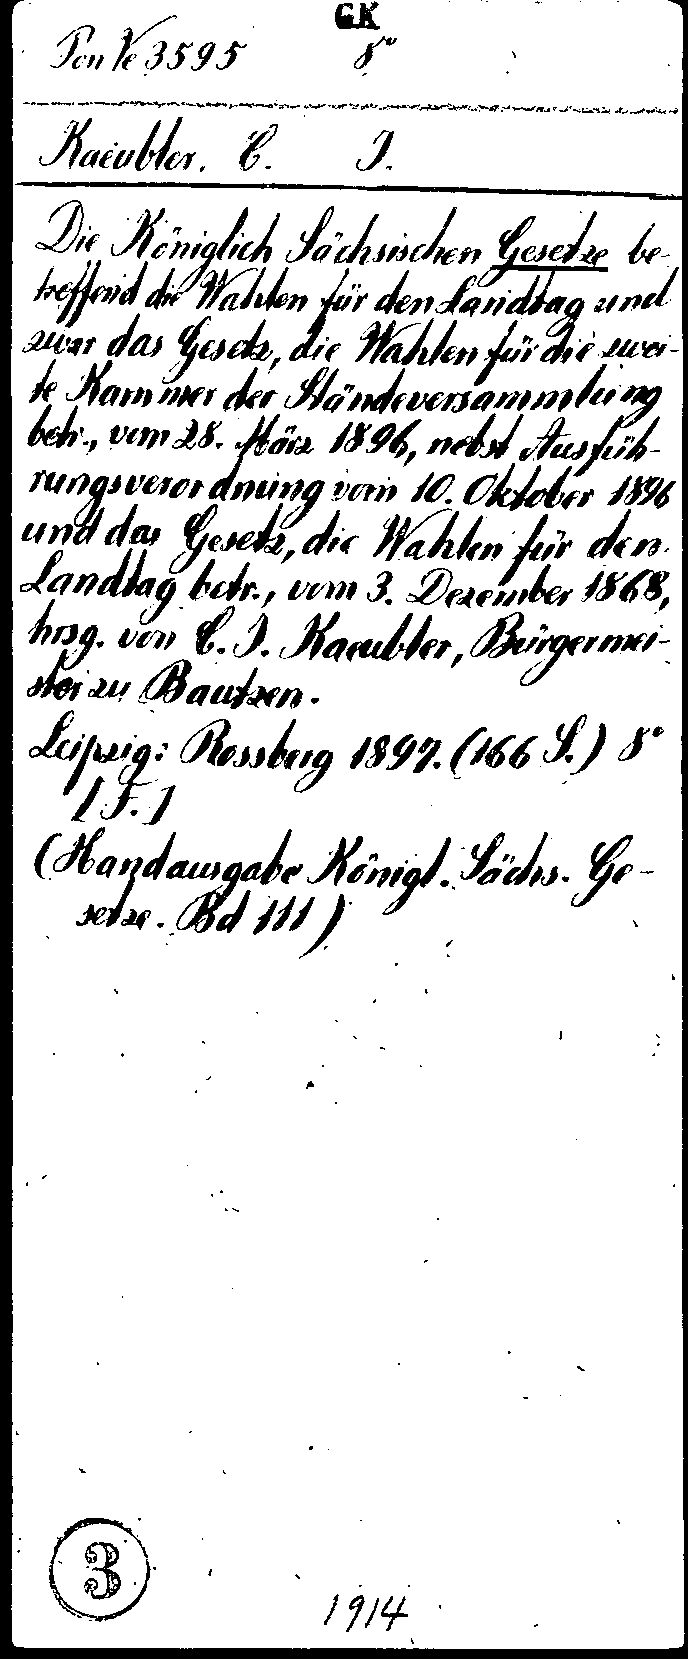 GK
Pon Ve 3595 8°
Kaeubler. C. J.
Die Königlich Sächsischen Gesetze be-
treffend die Wahlen für den Landtag und
zwar das Gesetz, die Wahlen für die zwei-
te Kammer der Ständeversammlung
betr., vom 28. März 1896, nebst Ausfüh-
rungsverordnung vom 10. Oktober 1896
und das Gesetz, die Wahlen für den
Landtag betr., vom 3. Dezember 1868,
hrsg. von C. J. Kaeubler, Bürgermei-
ster zu Bautzen.
Leipzig: Rossberg 1897. (166 S.) 8°
[F.]
(Handausgabe Königl. Sächs. Ge-
setze. Bd 111)
3
1914